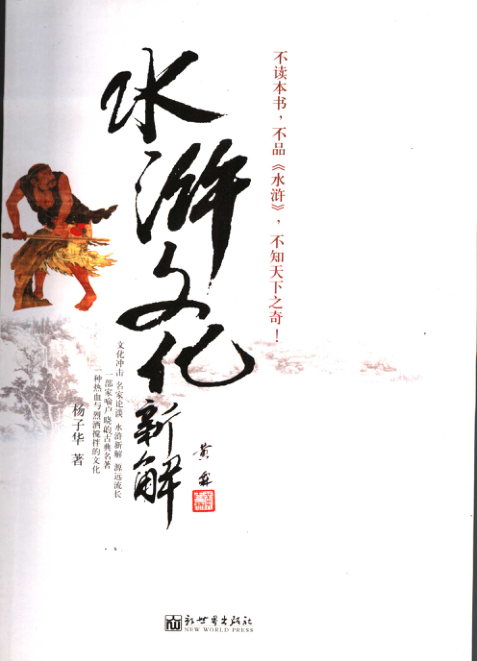 不读本书，不品《水浒》，不知天下之奇！
水浒文化
新解
黄霖
文化冲击 名家论谈 水浒新解 源远流长
一部家喻户晓的古典名著
一种热血与烈酒搅拌的文化
杨子华 著
新世界出版社
NEW WORLD PRESS